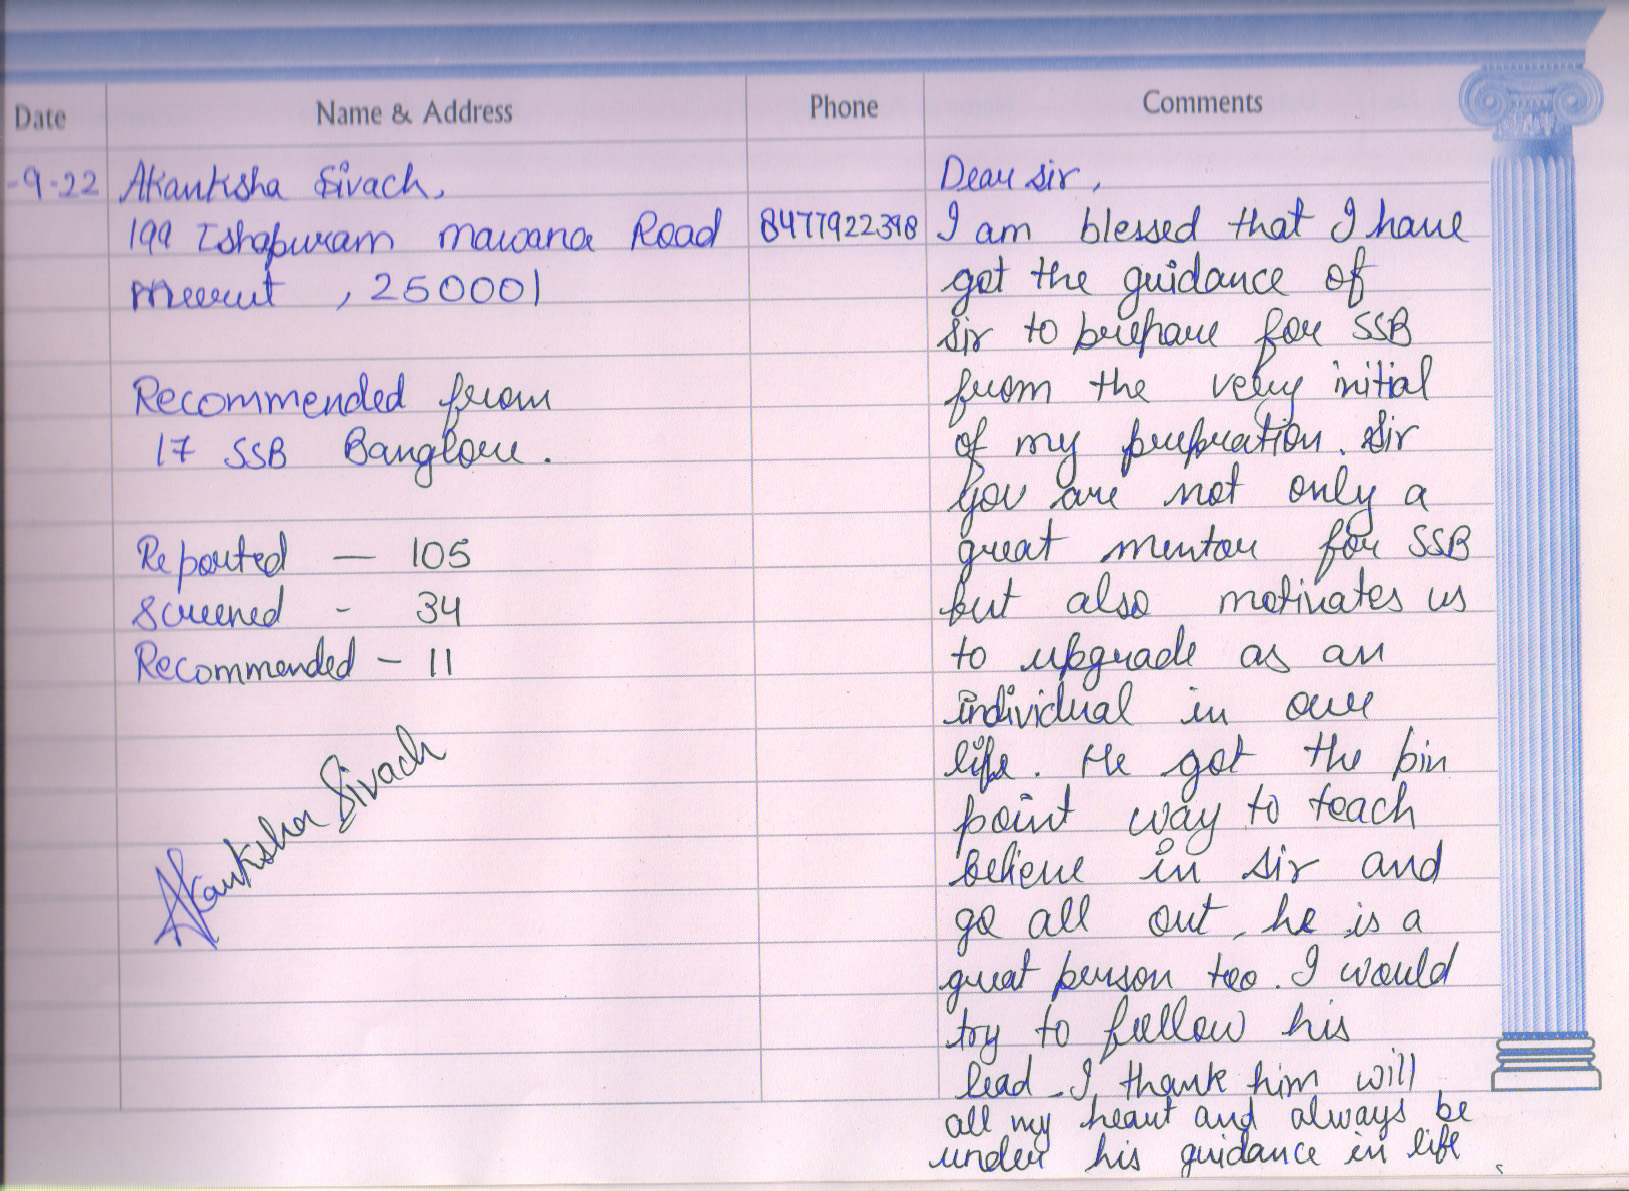 Date Name & Address Phone Comments
-9-22 Akanksha Sivach,
199 Ishapuram mawana Road
meerut , 250001
Recommended from
17 SSB Banglore.
Reported — 105
Screened - 34
Recommended - 11
Akanksha Sivach
8477922398
Dear sir,
I am blessed that I have
got the guidance of
sir to prepare for SSB
from the very initial
of my prepration. Sir
You are not only a
great mentor for SSB
but also motivates us
to upgrade as an
individual in our
life. He got the pin
point way to teach
Believe in sir and
go all out, he is a
great person too. I would
try to follow his
lead. I thank him will
all my heart and always be
under his guidance in life.